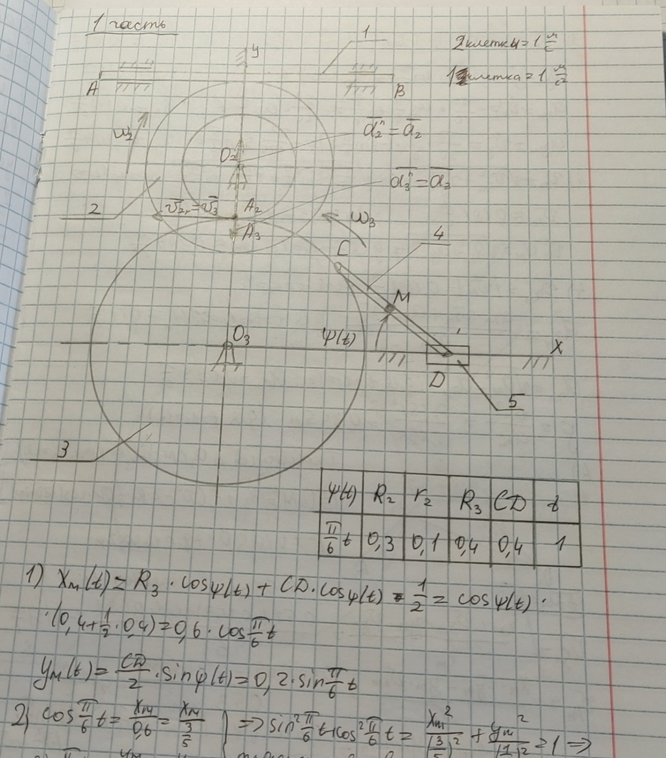 1 часть
1
2 клетки = 1 м/с
1 клетка = 1 м/с
y
A
B
ω2
O2
a2ⁿ = a2
a3ⁿ = a3
2
v2r = v3
A2
A3
ω3
4
C
M
O3
φ(t)
X
D
5
3
φ(t) R2 r2 R3 CD t
π/6 t 0,3 0,1 0,4 0,4 1
1) Xм(t) = R3 · cosφ(t) + CD · cosφ(t) · 1/2 = cosφ(t) ·
· (0,4 + 1/2 · 0,4) = 0,6 · cos π/6 t
yм(t) = CD/2 · sinφ(t) = 0,2 · sin π/6 t
2) cos π/6 t = Xм/0,6 = Xм/(3/5) } => sin² π/6 t + cos² π/6 t = Xм²/(3/5)² + yм²/( )² = 1 =>